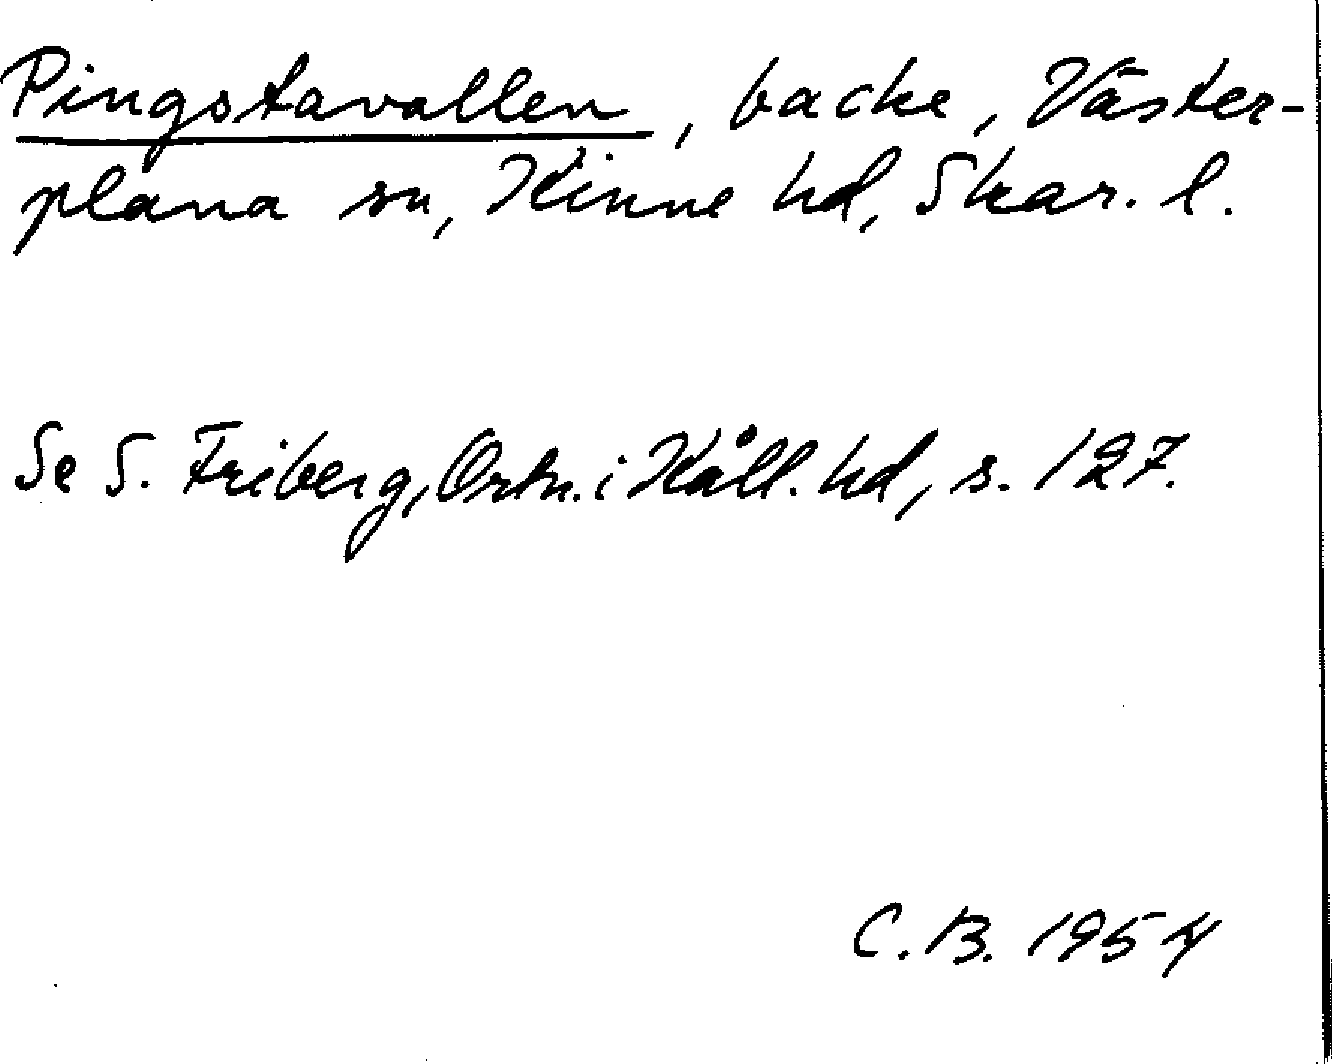 Pingstavallen, backe, Väster-
plana sn, Kinne hd, Skar. l.
Se S. Friberg, Ortn. i Kåll. hd, s. 127.
C. B. 1954